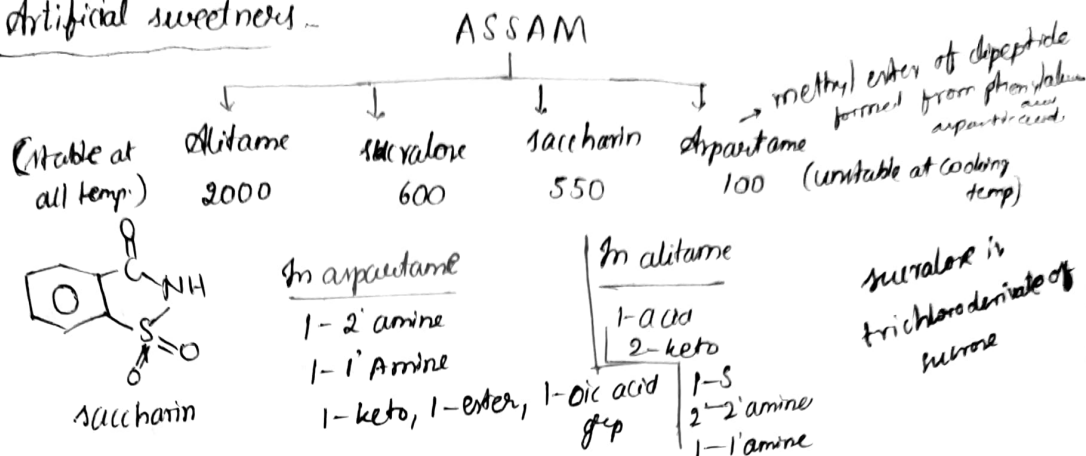 Artificial sweetners
ASSAM
(stable at all temp.)
Alitame
2000
sucralose
600
saccharin
550
Aspartame
100
→ methyl ester of dipeptide
formed from phenylala
and
aspartic acid.
(unstable at cooking
temp)
O
C
NH
S
O
O
saccharin
In aspartame
1-2° amine
1-1° Amine
1-keto, 1-ester, 1-oic acid
grp
In alitame
1-acid
2-keto
1-S
2-2° amine
1-1° amine
sucralose is
trichloro derivate of
sucrose